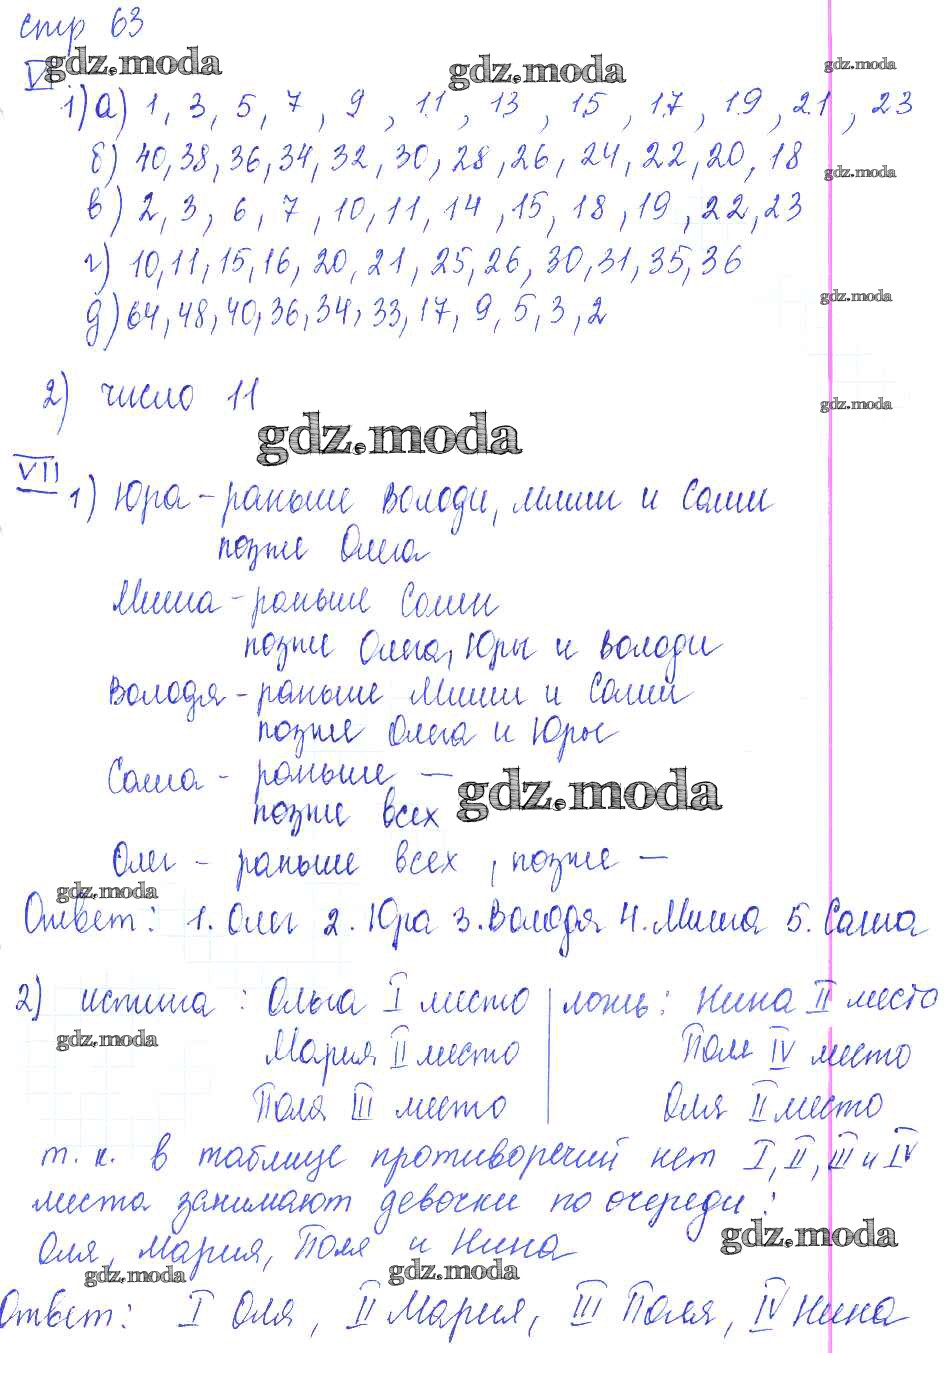 стр 63
gdz.moda
gdz.moda
gdz.moda
VI
1) а) 1, 3, 5, 7, 9, 11, 13, 15, 17, 19, 21, 23
б) 40, 38, 36, 34, 32, 30, 28, 26, 24, 22, 20, 18
gdz.moda
в) 2, 3, 6, 7, 10, 11, 14, 15, 18, 19, 22, 23
г) 10, 11, 15, 16, 20, 21, 25, 26, 30, 31, 35, 36
gdz.moda
д) 64, 48, 40, 36, 34, 33, 17, 9, 5, 3, 2
2) число 11
gdz.moda
gdz.moda
VII
1) Юра - раньше Володи, Миши и Саши
позже Олега
Миша - раньше Саши
позже Олега, Юры и Володи
Володя - раньше Миши и Саши
позже Олега и Юры
Саша - раньше —
gdz.moda
позже всех
Олег - раньше всех, позже —
gdz.moda
Ответ: 1. Олег 2. Юра 3. Володя 4. Миша 5. Саша
2) истина: Ольга I место | ложь: Нина II место
gdz.moda
Мария II место Поля IV место
Поля III место Оля II место
т. к. в таблице противоречий нет I, II, III и IV
места занимают девочки по очереди:
gdz.moda
Оля, Мария, Поля и Нина
gdz.moda
gdz.moda
Ответ: I Оля, II Мария, III Поля, IV Нина